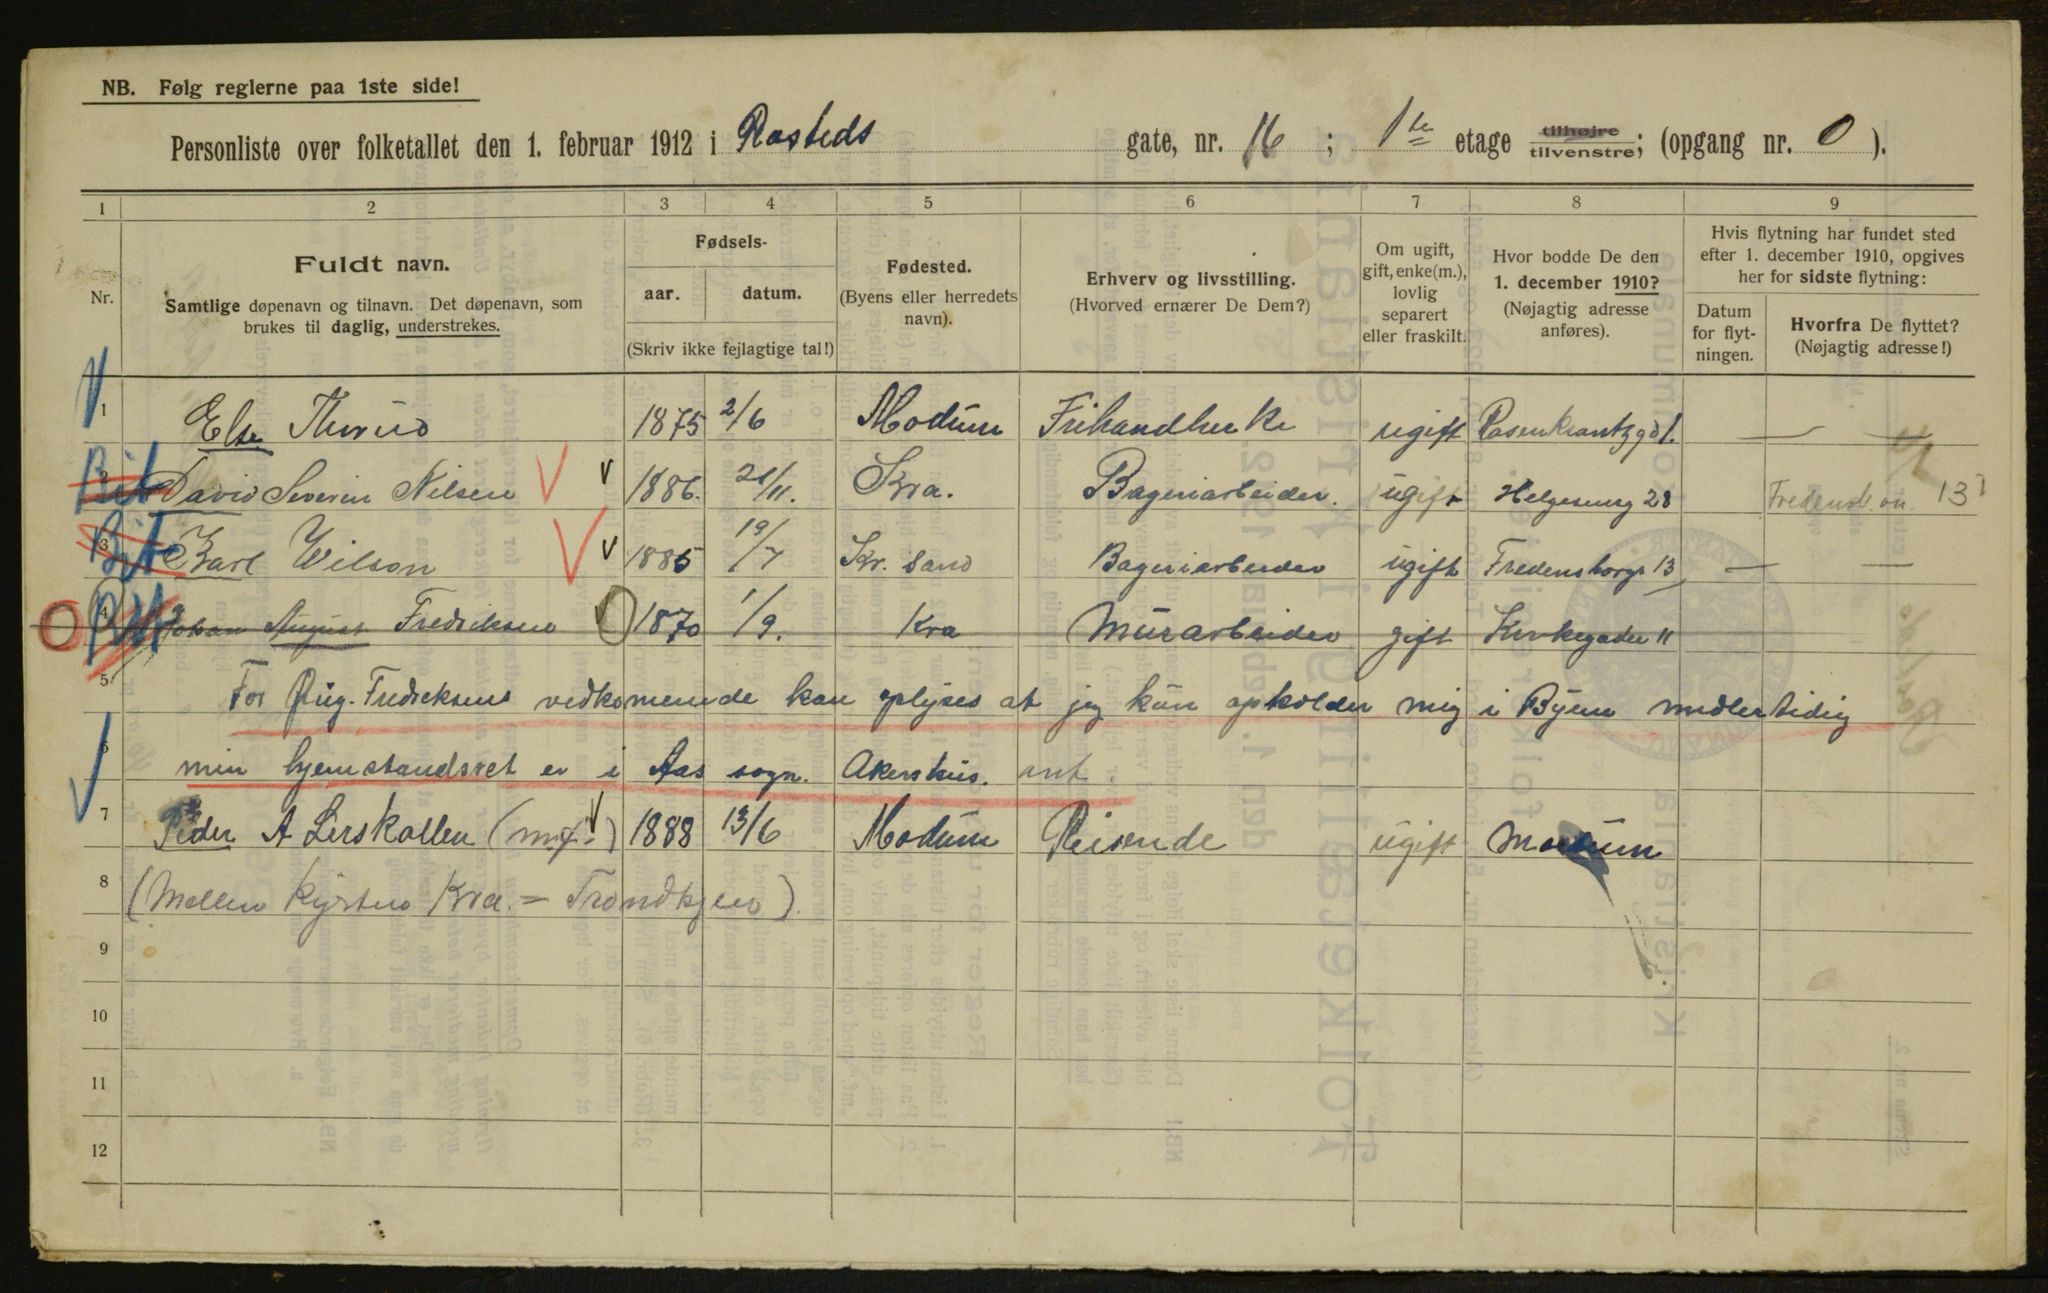 NB. Følg reglerne paa 1ste side!
Personliste over folketallet den 1. februar 1912 i Rosteds gate, nr. 16; 1ste etage tilhøjre tilvenstre; (opgang nr. 0).
1 2 3 4 5 6 7 8 9
Nr.
Fuldt navn.
Samtlige døpenavn og tilnavn. Det døpenavn, som
brukes til daglig, understrekes.
Fødsels-
aar. datum.
(Skriv ikke fejlagtige tal!)
Fødested.
(Byens eller herredets
navn).
Erhverv og livsstilling.
(Hvorved ernærer De Dem?)
Om ugift,
gift, enke(m.),
lovlig
separert
eller fraskilt.
Hvor bodde De den
1. december 1910?
(Nøjagtig adresse
anføres).
Hvis flytning har fundet sted
efter 1. december 1910, opgives
her for sidste flytning:
Datum
for flyt-
ningen.
Hvorfra De flyttet?
(Nøjagtig adresse!)
1 Else Thurud 1875 2/6 Modum ugift Rosenkrantzgd 1. — —
2 David Severin Nilsen 1886. 21/11. Kra. Bageriarbeider. ugift Helgesensg 28 13
3 Karl Wilson 1885 19/7 Kr. sand Bageriarbeider ugift Fredensborgv 13 — —
4 Johan August Fredriksen 1870 1/9. Kra Murarbeider gift Kirkegaden 11
5 For Aug. Fredriksens vedkomende kan oplyses at jeg kun opholder mig i Byen midlertidig
6 min hjemstandsret er i Aas sogn. Akershus. amt.
7 Peder A Lerskallen (m.f.) 1888 13/6 Modum Reisende ugift Modum
8 (Mellem Kysten Kra. = Trondhjem)
9
10
11
12